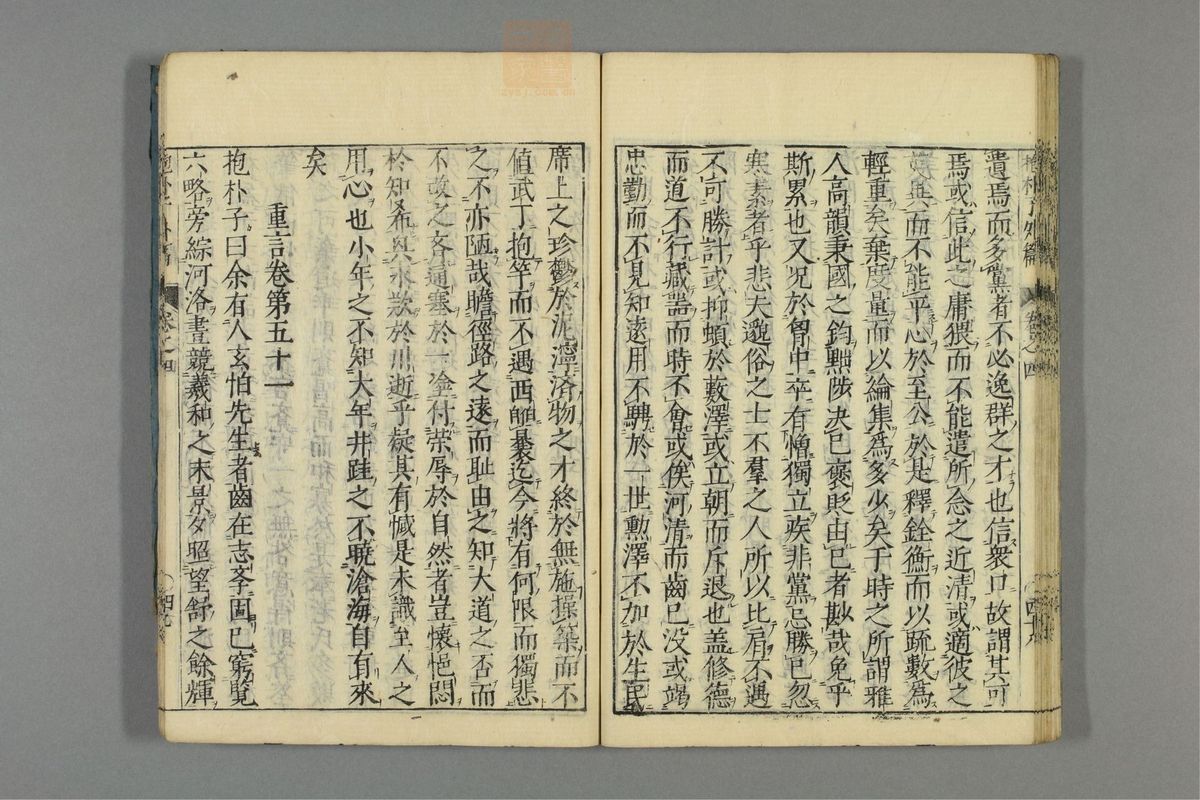 遺焉而多黨者不必逸群之才也信衆口故謂其可
焉或信此之庸猥而不能遣所念之近清或適彼之
異而不能平心於至公於是釋銓衡而以疏數為
輕重矣棄度量而以綸集為多少矣于時之所謂雅
人高韻秉國之鈞黜陟决已褒貶由已者尠哉免乎
斯累也又况於胷中率有憎獨立疾非黨忌勝已忽
寒素者乎悲夫邈俗之士不羣之人所以比肩不遇
不可勝計或抑頓於藪澤或立朝而斥退也盖修德
而道不行藏器而時不會或俟河清而齒已没或竭
忠勤而不見知遠用不騁於一世勲澤不加於生民
席上之珍鬱於泥濘濟物之才終於無施操築而不
值武丁抱竿而不遇西伯曩迄今將有何限而獨悲
之不亦陋哉瞻徑路之遠而耻由之知大道之否而
不改之吝通塞於一塗付榮辱於自然者豈懷悒悶
於知希興永歎於川逝乎疑其有憾是未識至人之
用心也小年之不知大年井蛙之不曉滄海自有來
矣
重言卷第五十一
抱朴子曰余有人玄怕先生者齒在志學固已窮覽
六略旁綜河洛晝競羲和之末景夕照望舒之餘輝